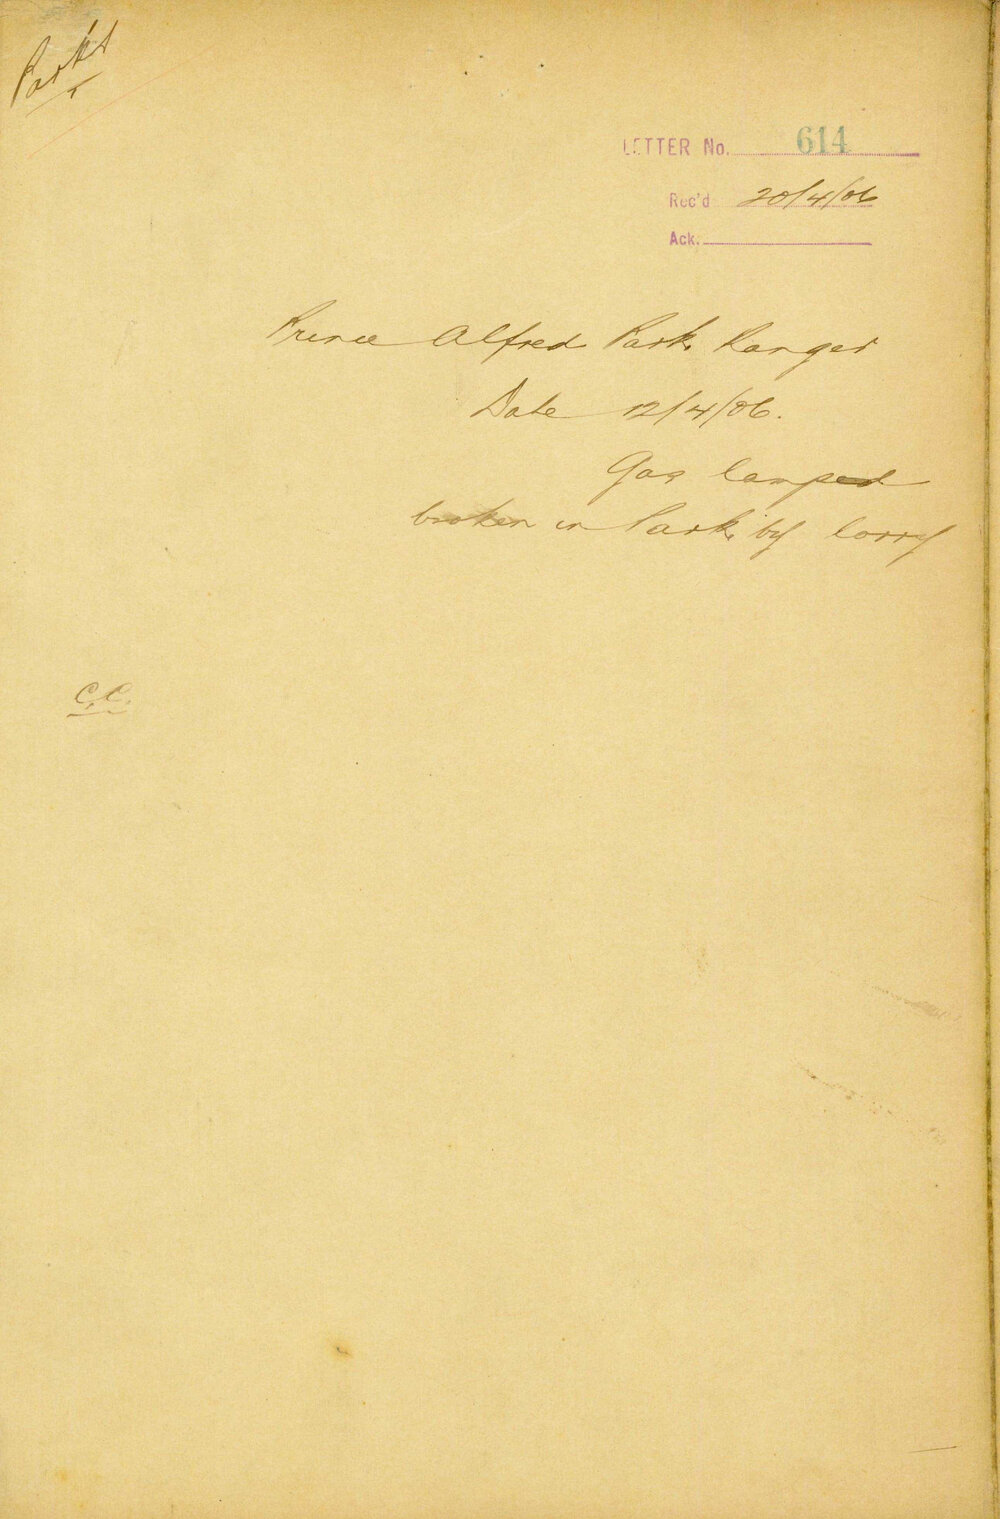 Parks
LETTER No. 614
Rec'd 20/4/06
Ack.
Prince Alfred Park Ranger
Date 12/4/06.
Gas lamped
broken in Park by lorry
C.C.